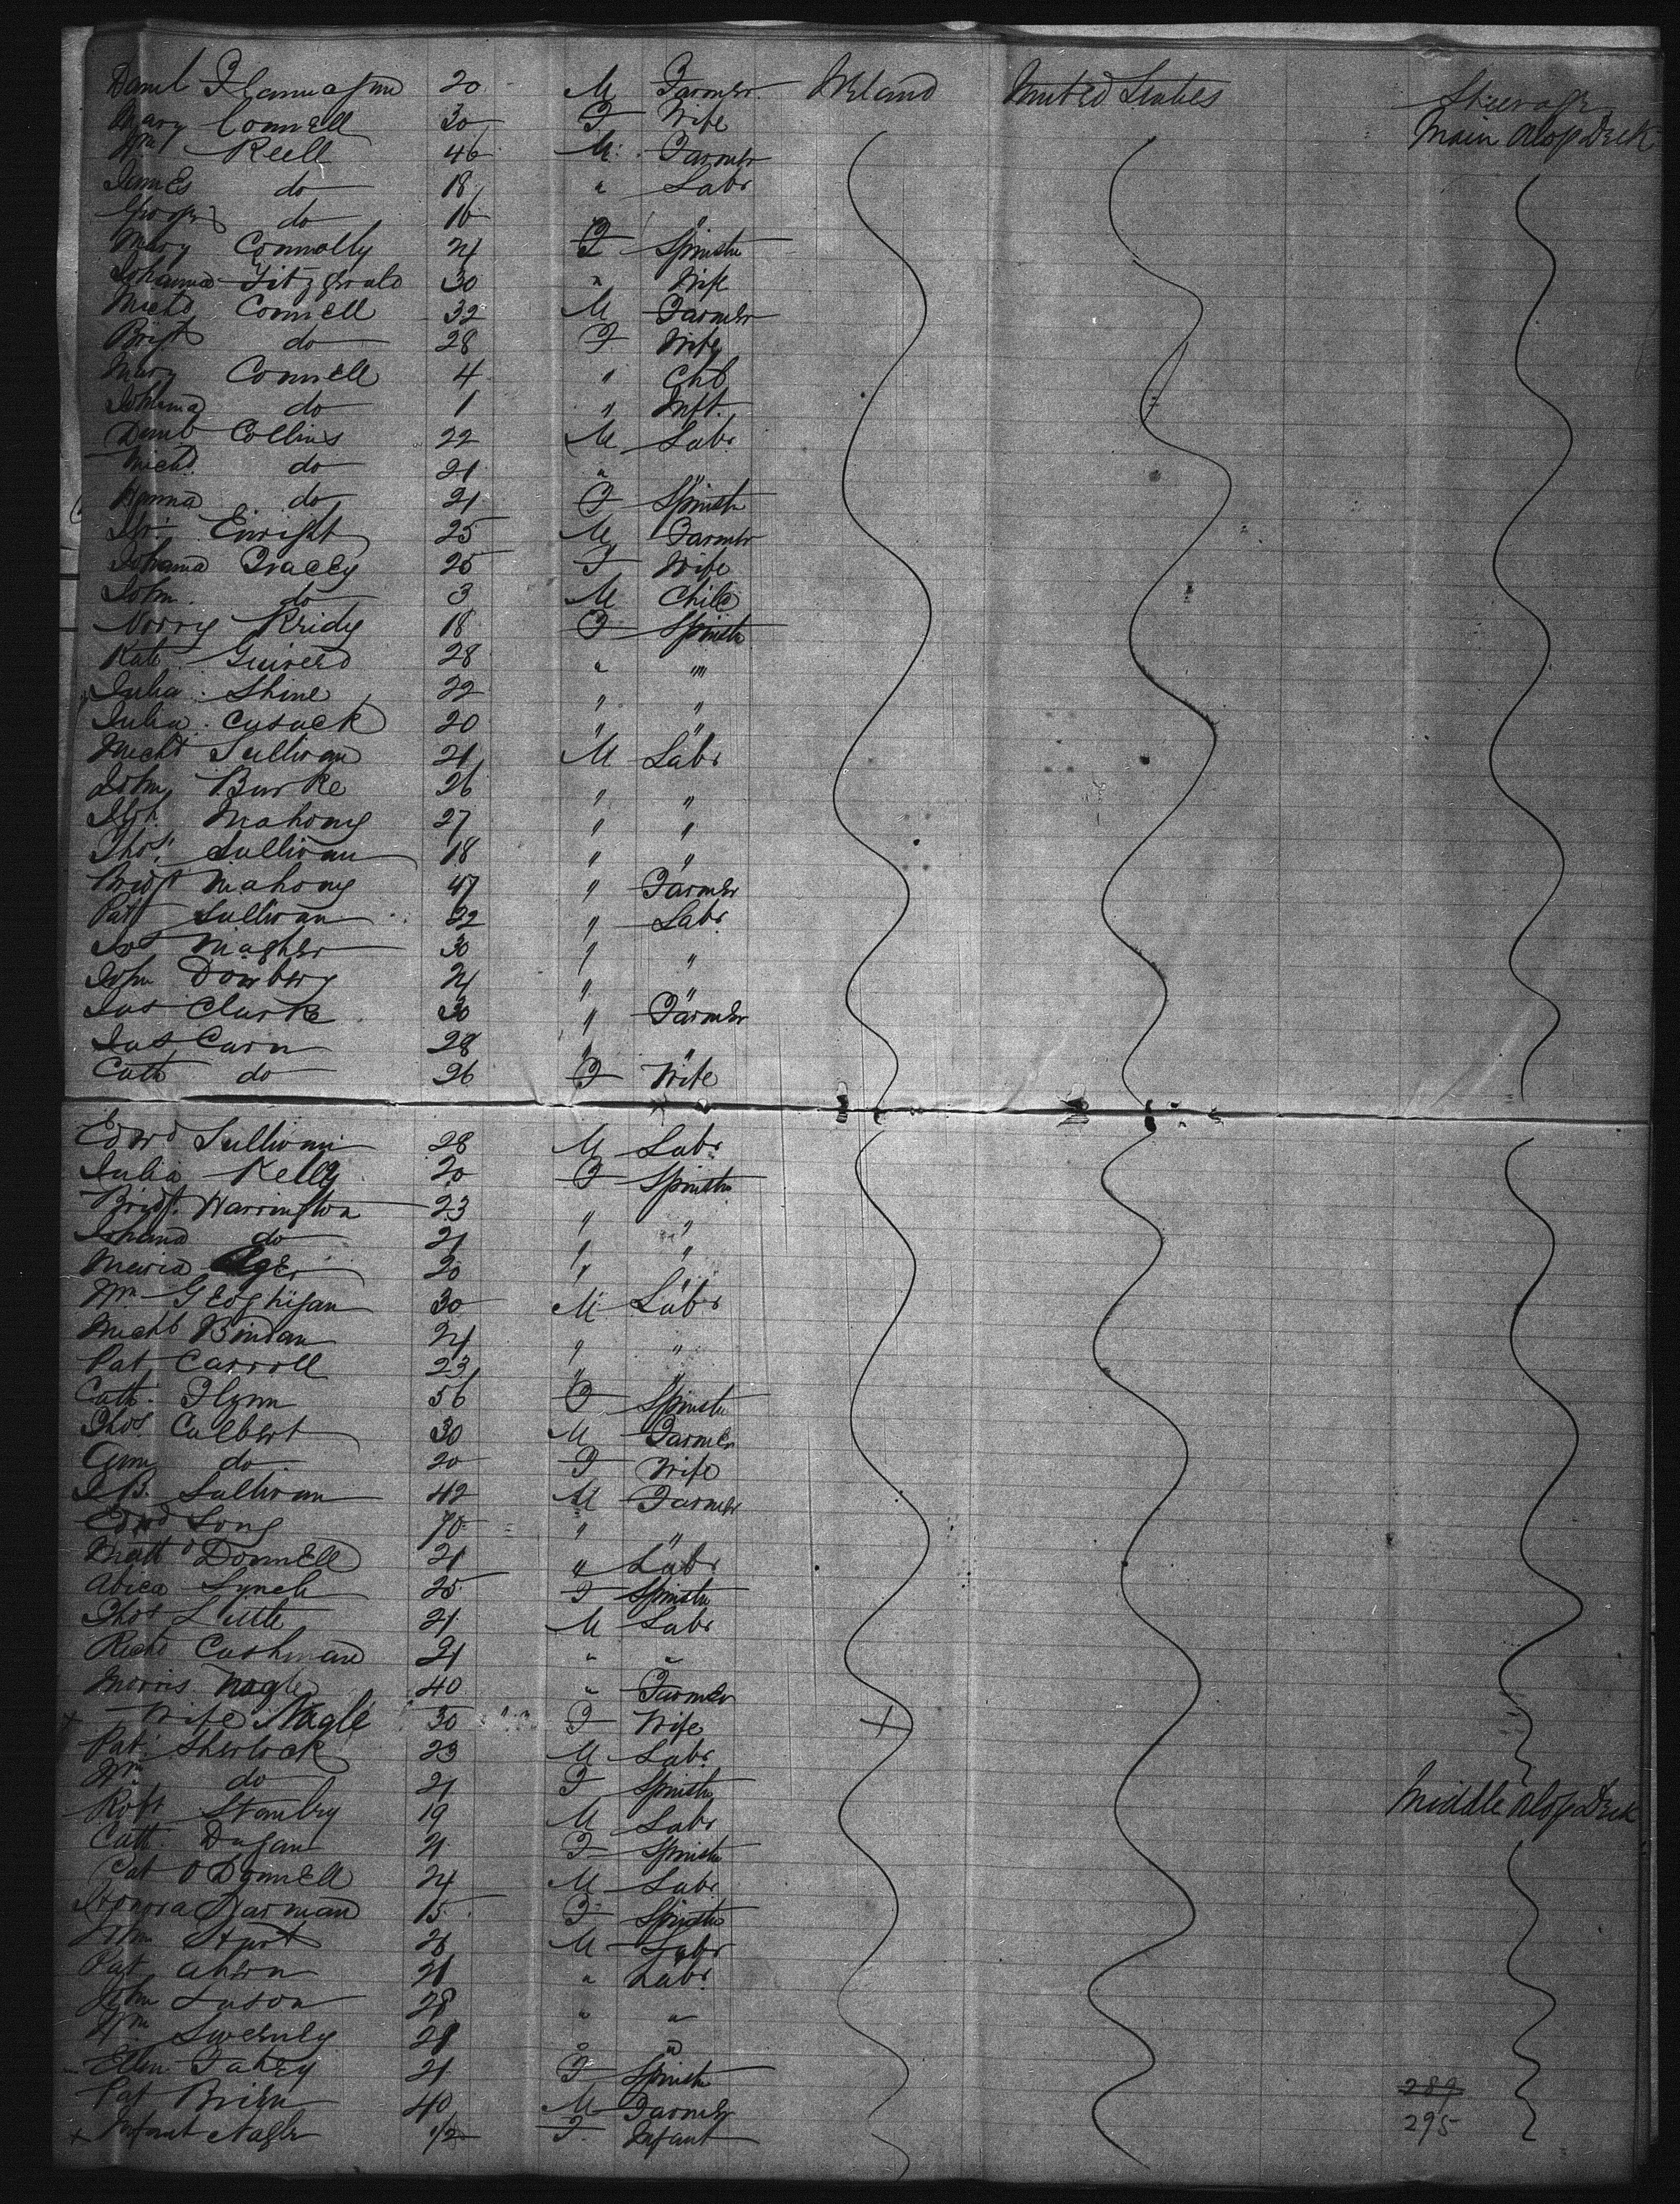 Danl Flannagan 20 M Farmer Ireland United States Steerage
Mary Connell 30 F Wife Main Alop Deck
Wm Kell 46 M Farmer
James do 18 " Labr
George do 16 " "
Mary Connolly 21 F Spinstr
Johanna Fitzgerald 30 " Wife
Michl Connell 32 M Farmer
Bridgt do 28 F Wife
Mary Connell 4 " Chld
Johanna do 1 " Inft.
Danl Collins 22 M Labr
Michl do 21 " "
Hanna do 21 F Spinstr
Enright 25 M Farmer
Johanna Tracey 25 F Wife
John do 3 M Child
Norry Kridy 18 F Spinstr
Kate 28 " "
Julia Shine 22 " "
Julia Cusack 20 " "
Michl Sullivan 21 M Labr
John Burke 26 " "
Mahony 27 " "
Thos. Sullivan 18 " "
Bridgt Mahony 47 " Farmer
Patt Sullivan 22 " Labr
Jas Magher 30 " "
John 21 " "
Jas Clarke 30 " Farmer
Jas Carn 28 " "
Cath do 26 F Wife
Edwd Sullivan 28 M Labr
Julia Kelly 20 F Spinstr
Bridgt. Harrington 23 " "
Johana do 21 " "
Maria 20 " "
Wm Geoghigan 30 M Labr
Michl 21 " "
Pat Carroll 23 " "
Cath. Flynn 56 F Spinstr
Thos. Culbert 30 M Farmer
Ann do 20 F Wife
J.B. Sullivan 42 M Farmer
Edwd Long 70 " "
Matt O'Donnell 21 " Labr
Abica Lynch 25 F Spinstr
Thos Little 21 M Labr
Richd Cashman 21 " "
Morris Nagle 40 " Farmer
+ Wife Nagle 30 F Wife +
Pat. Sherlock 23 M Labr
Wm do 21 F Spinstr
Robt Stanley 19 M Labr Middle Alop Deck
Cath. Dugan 21 F Spinstr
Pat O Donnell 24 M Labr
Honora Harman 15 F Spinstr
John 26 M Labr
Pat Ahern 21 " Labr
John Lason 28 " "
Wm Sweeney 28 " "
Ellen Fahey 21 F Spinstr
Pat Brien 40 M Farmer 289
+ Infant Nagle 1/2 F Infant 295